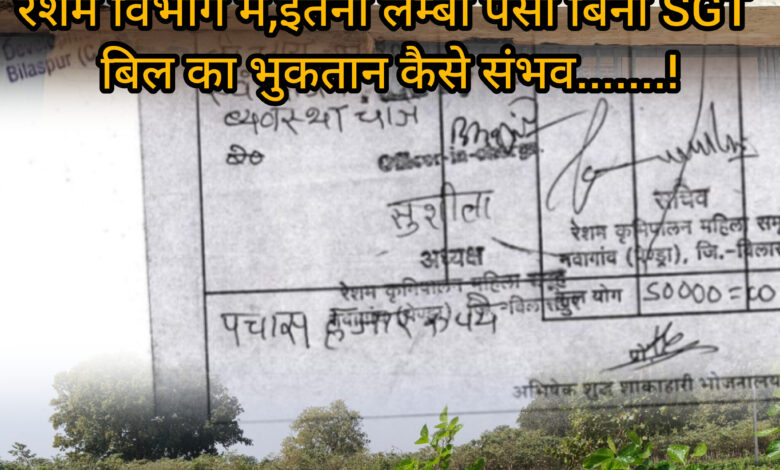 रेशम विभाग में,इतना लम्बा पैसा बिना SGT
बिल का भुकतान कैसे संभव.......!
Bilaspur
व्यवस्था चार्ज
Officer-in-charge
सुशीला
अध्यक्ष
रेशम कृमिपालन महिला समूह
सचिव
रेशम कृमिपालन महिला समू
नवागांव (पेण्ड्रा), जि.-विलास
योग 50000=00
पचास हजार रूपये
अभिषेक शुद्ध शाकाहारी भोजनालय